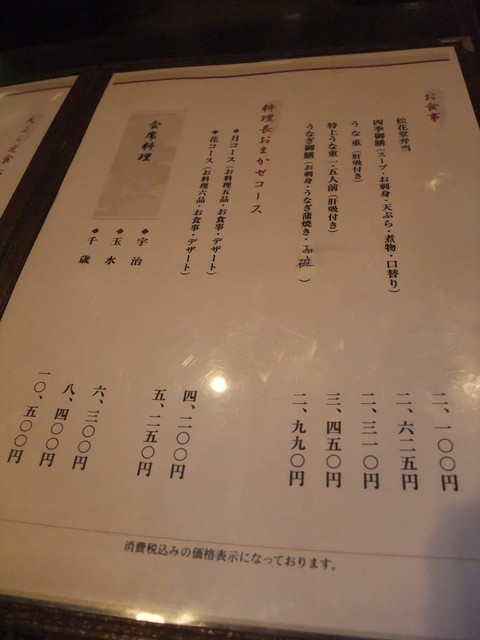 お食事
松花堂弁当
二、一〇〇円
四季御膳(スープ・お刺身・天ぷら・煮物・口替り)
二、六二五円
うな重(肝吸付き)
二、三一〇円
特上うな重一・五人前(肝吸付き)
三、四五〇円
うなぎ御膳(お刺身・うなぎ蒲焼き・)
二、九九〇円
料理長おまかせコース
◆月コース(お料理五品・お食事・デザート)
四、二〇〇円
◆花コース(お料理六品・お食事・デザート)
五、二五〇円
会席料理
◆宇治
六、三〇〇円
◆玉水
八、四〇〇円
◆千歳
一〇、五〇〇円
消費税込みの価格表示になっております。
天ぷら定食